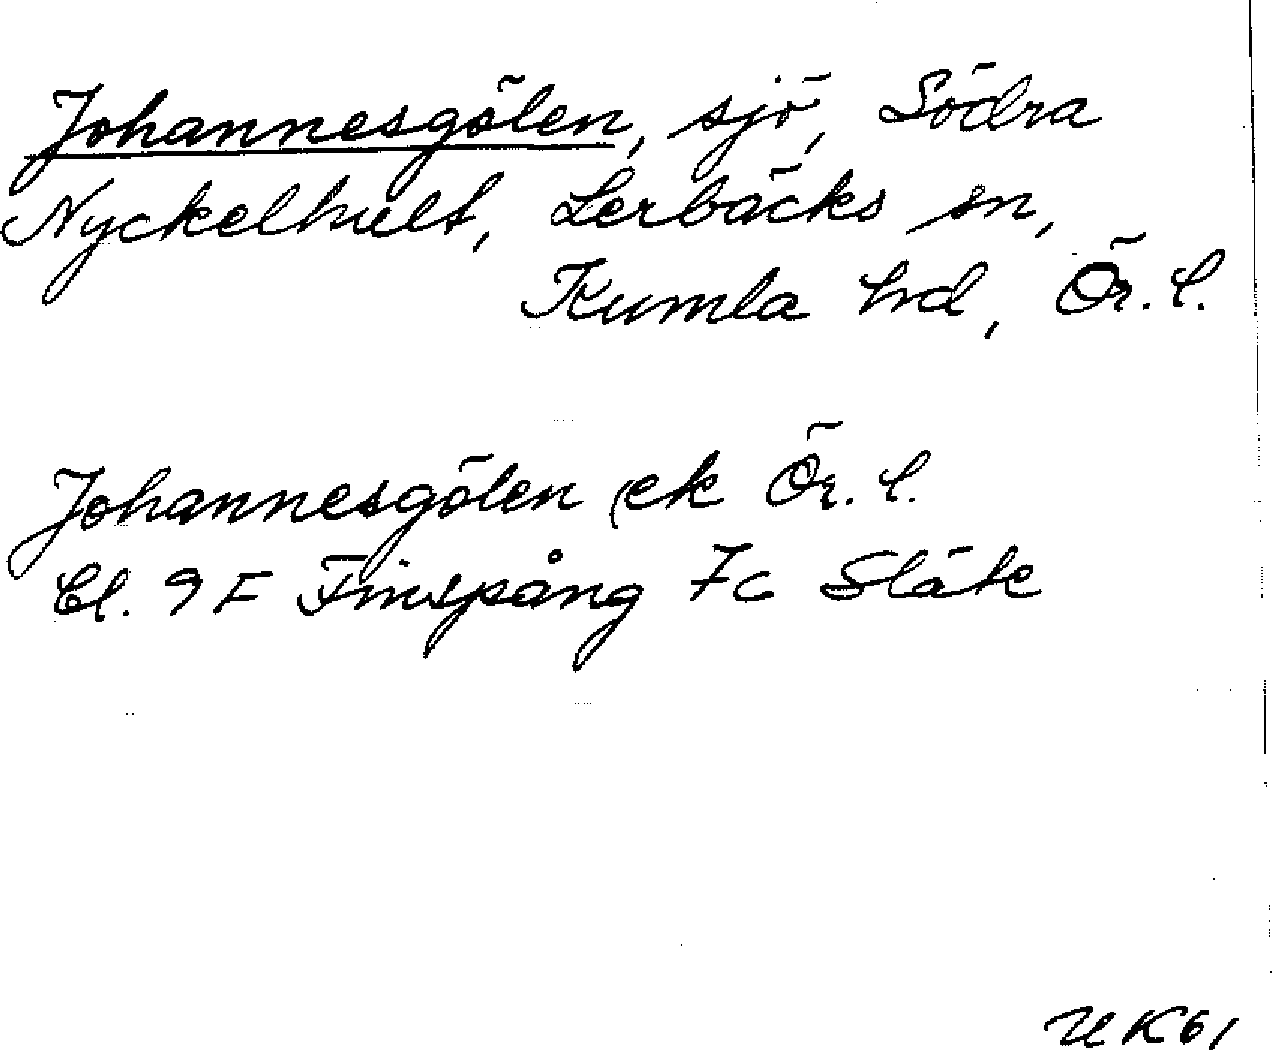 Johannesgölen, sjö, Södra
Nyckelhult, Lerbäcks sn,
Kumla hd, Ör. l.
Johannesgölen (ek Ör. l.
Bl. 9 F Finspång 7c Släte
UK61